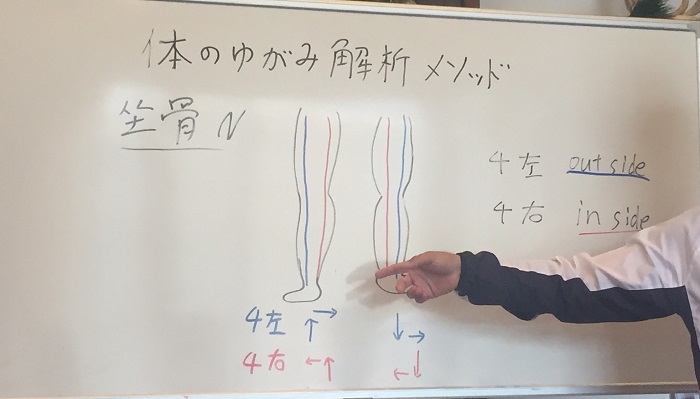 体のゆがみ解析メソッド
坐骨 N
4左 outside
4右 inside
4左 ↑→ ↓→
4右 ←↑ ←↓